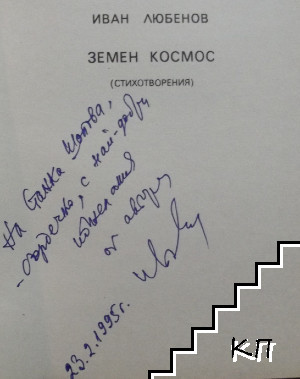 ИВАН ЛЮБЕНОВ
ЗЕМЕН КОСМОС
(СТИХОТВОРЕНИЯ)
На Станка
-сърдечно, с най-добри
пожелания
от автора
23.2.1995г.
КП